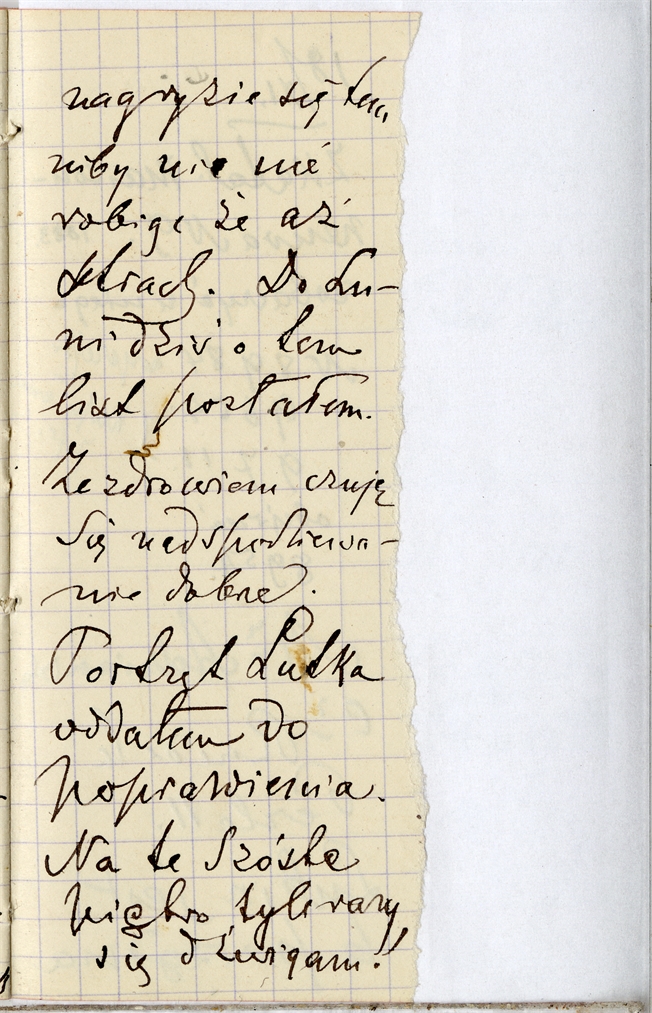 nagryzie się tem
niby nic nie
robiąc że aż
strach. Do Lu-
ni dziś o tem
list posłałem.
Ze zdrowiem czuję
się nadspodziewa-
nie dobrze.
Portret Lutka
oddałem do
poprawienia.
Na te szóste
piętro tyle razy
się dźwigam!